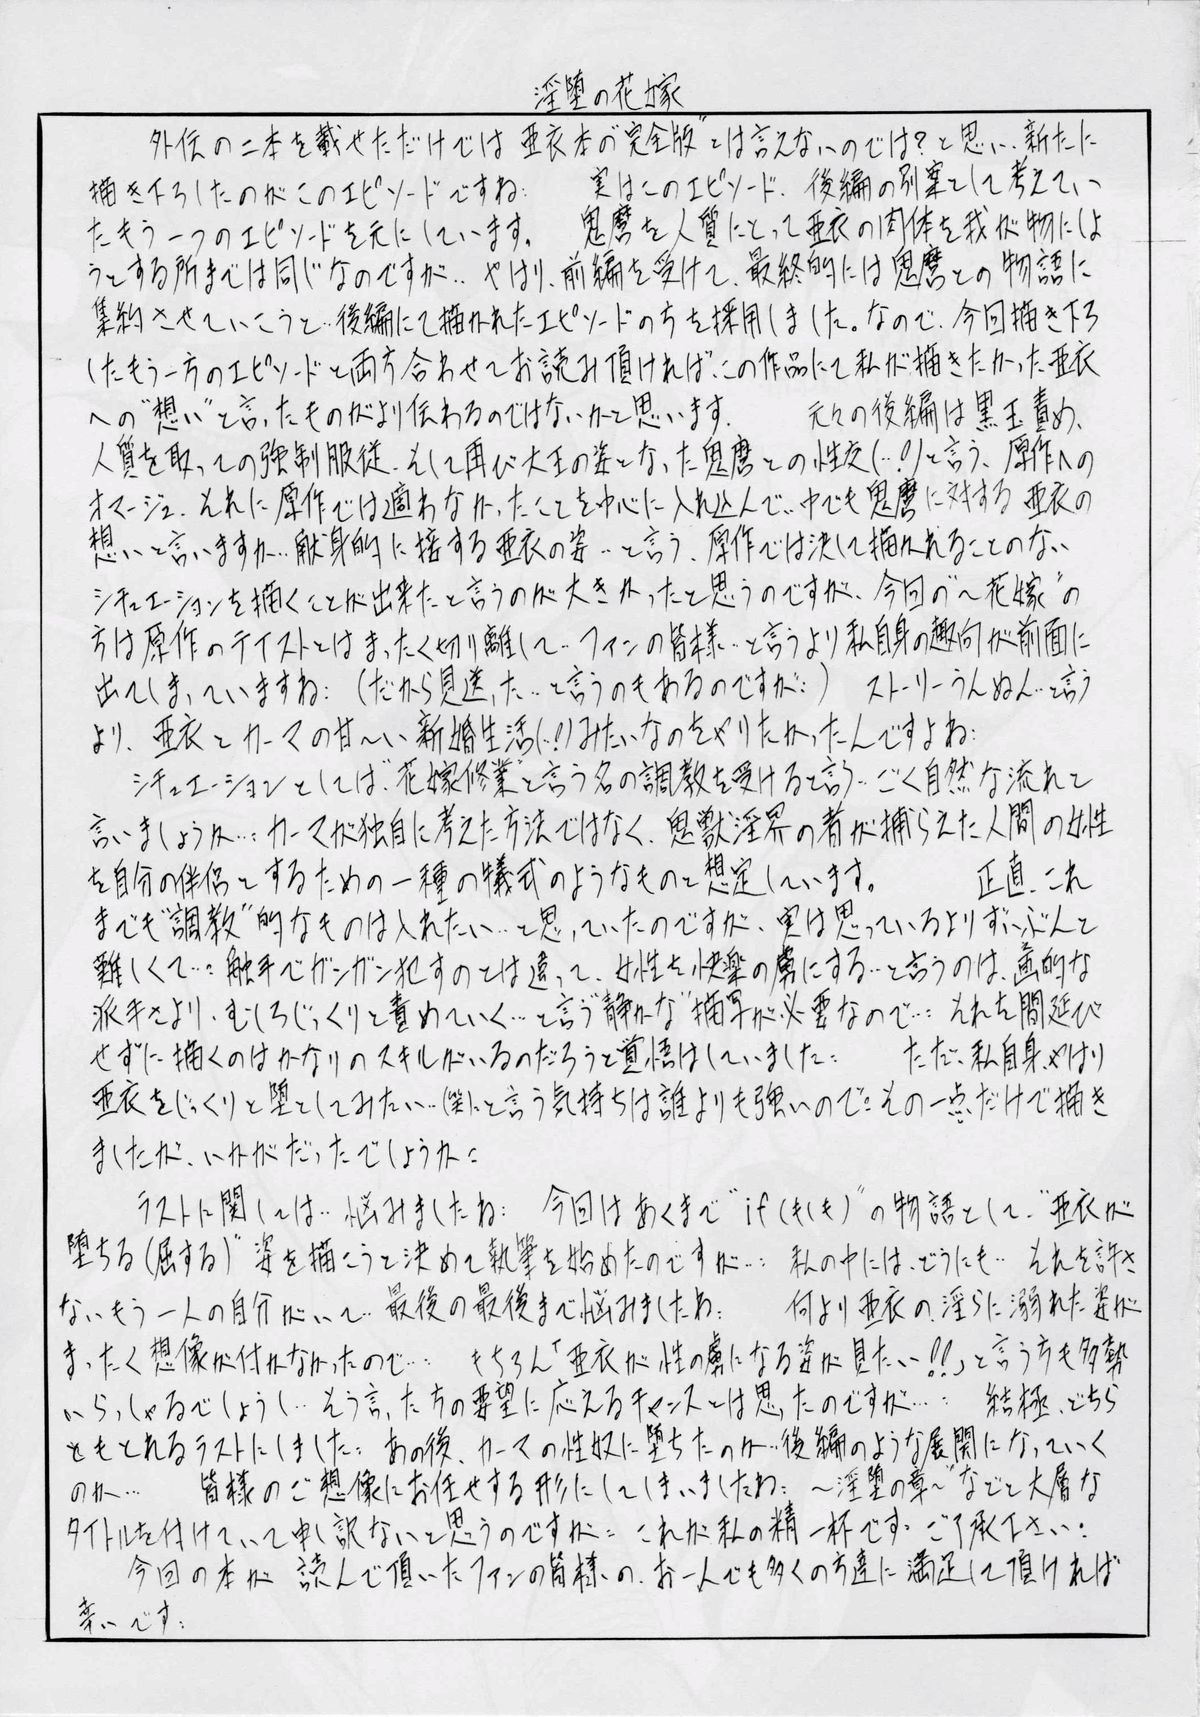 淫堕の花嫁
外伝の二本を載せただけでは 亜衣本の“完全版”とは言えないのでは？と思い、新たに
描き下ろしたのがこのエピソードですね: 実はこのエピソード、後編の別案として考えてい
たもう一つのエピソードを元にしています。 鬼麿を人質にとって亜衣の肉体を我が物にしよ
うとする所までは同じなのですが‥ やはり、前編を受けて、最終的には鬼麿との物語に
集約させていこうと‥後編にて描かれたエピソードの方を採用しました。なので、今回描き下ろ
したもう一方のエピソードと両方合わせてお読み頂ければ、この作品にて私が描きたかった亜衣
への“想い”と言ったものがより伝わるのではないかと思います。 元々の後編は黒玉責め、
人質を取っての強制服従、そして再び大王の姿となった鬼麿との性交(‥!)と言う、原作への
オマージュ、それに原作では適わなかったことを中心に入れ込んで‥中でも鬼麿に対する亜衣の
想いと言いますか‥献身的に接する亜衣の姿‥と言う、原作では決して描かれることのない
シチュエーションを描くことが出来たと言うのが大きかったと思うのですが、今回の“～花嫁”の
方は原作のテイストとはまったく切り離して‥ファンの皆様‥と言うより私自身の趣向が前面に
出てしまっていますね: (だから見送った‥と言うのもあるのですが:) ストーリーうんぬん‥と言う
より、亜衣とカーマの甘～い新婚生活(‥!)みたいなのをやりたかったんですよね:
シチュエーションとしては“花嫁修業”と言う名の調教を受けると言う‥ごく自然な流れと
言いましょうか‥: カーマが独自に考えた方法ではなく、鬼獣淫界の者が捕らえた人間の女性
を自分の伴侶とするための一種の儀式のようなものと想定しています。 正直、これ
までも“調教”的なものは入れたい‥と思っていたのですが、実は思っているよりずいぶんと
難しくて‥: 触手でガンガン犯すのとは違って、女性を快楽の虜にする‥と言うのは、画的な
派手さより、むしろじっくりと責めていく‥と言う“静かな”描写が必要なので‥: それを間延び
せずに描くのはかなりのスキルがいるのだろうと覚悟はしていました: ただ、私自身、やはり
亜衣をじっくりと堕としてみたい‥(笑)と言う気持ちは誰よりも強いので: その一点だけで描き
ましたが、いかがだったでしょうか:
ラストに関しては‥悩みましたね: 今回はあくまで“if(もしも)”の物語として、“亜衣が
堕ちる(屈する)”姿を描こうと決めて執筆を始めたのですが‥: 私の中には、どうにも‥それを許さ
ないもう一人の自分がいて‥最後の最後まで悩みましたね: 何より亜衣の淫らに溺れた姿が
まったく想像が付かなかったので‥: もちろん「亜衣が性の虜になる姿が見たい!!」と言う方も多勢
いらっしゃるでしょうし‥そう言った方の要望に応えるチャンスとは思ったのですが‥: 結極、どちら
ともとれるラストにしました: あの後、カーマの性奴に堕ちたのか‥後編のような展開になっていく
のか‥ 皆様のご想像にお任せする形にしてしまいましたね: ～淫堕の章～”などと大層な
タイトルを付けていて申し訳ないと思うのですが: これが私の精一杯です: ご了承下さい:
今回の本が 読んで頂いたファンの皆様の、お一人でも多くの方達に満足して頂ければ
幸いです: